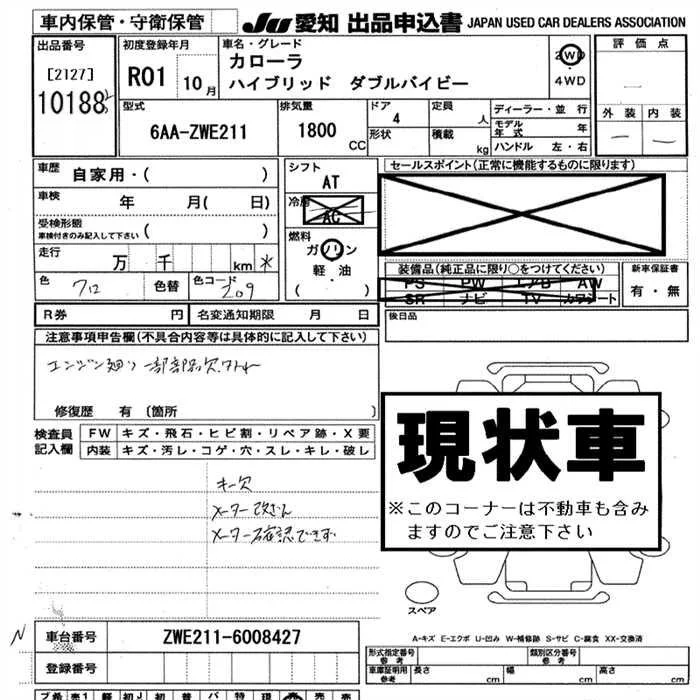 車内保管・守衛保管
JU 愛知 出品申込書 JAPAN USED CAR DEALERS ASSOCIATION
出品番号
[2127]
10188
初度登録年月
R01 10 月
車名・グレード
カローラ
ハイブリッド ダブルバイビー
2WD
・
4WD
評価点
外装 内装
型式
6AA-ZWE211
排気量
1800 CC
ドア
4
形状
定員
人
積載
kg
ディーラー・並行
モデル年式 年
ハンドル 左・右
車歴 自家用・( )
車検 年 月( 日)
受検形態
車検付きのみ記入して下さい ( )
走行 万 千 km *
色 色替 色コード 209
シフト
AT
冷房
AC
燃料
ガソリン
軽・油
( )
セールスポイント(正常に機能するものに限ります)
装備品(純正品に限り○をつけてください)
PS PW エアB AW
SR ナビ TV カワシート
新車保証書
有・無
R券 円 名変通知期限 月 日
後日品
注意事項申告欄(不具合内容等は具体的に記入して下さい)
修復歴 有 〔箇所 〕
検査員
記入欄
FW キズ・飛石・ヒビ割・リペア跡・X要
内装 キズ・汚レ・コゲ・穴・スレ・キレ・破レ
キー欠
メーター改ざん
メーター確認できず
現状車
※このコーナーは不動車も含み
ますのでご注意下さい
スペア
A-キズ E-エクボ U-凹み W-補修跡 S-サビ C-腐食 XX-交換済
N
車台番号 ZWE211-6008427
登録番号
形式指定番号
参考
類別区分番号
参考
車庫証明用
参考
長さ cm 幅 cm 高さ cm